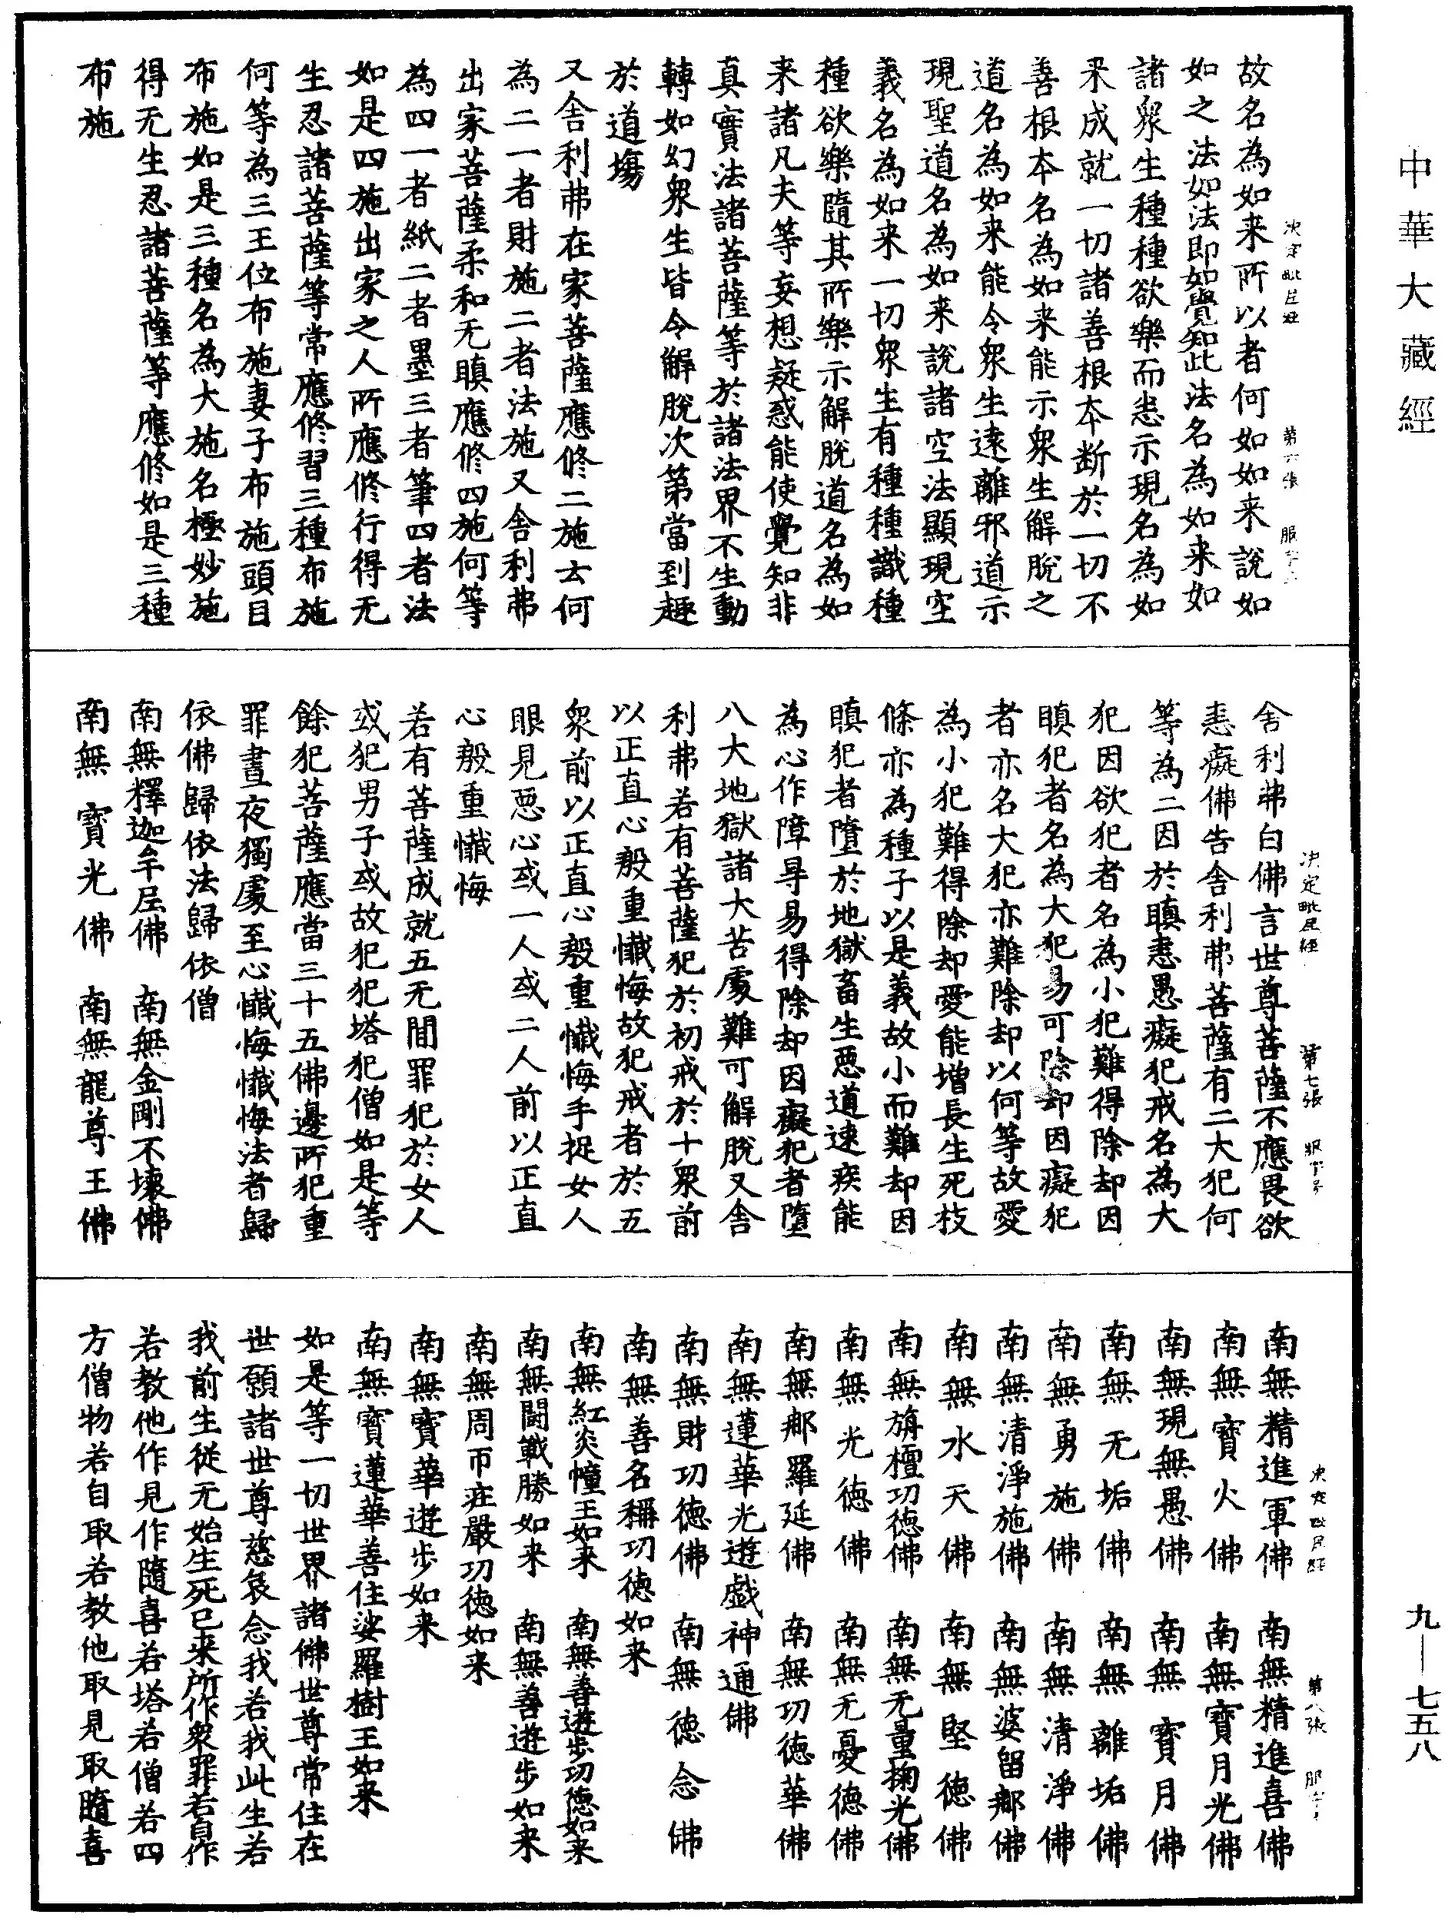 中華大藏經
故名為如来所以者何如如来說如
如之法如法即如覺知此法名為如来如
諸衆生種種欲樂而悉示現名為如
来成就一切諸善根本断於一切不
善根本名為如来能示衆生解脫之
道名為如来能令衆生逺離邪道示
現聖道名為如来說諸空法顯現空
義名為如来一切衆生有種種識種
種欲樂隨其所樂示解脫道名為如
来諸凡夫等妄想疑惑能使覺知非
真實法諸菩薩等於諸法界不生動
轉如幻衆生皆令解脫次第當到趣
於道塲
又舍利弗在家菩薩應修二施去何
為二一者財施二者法施又舍利弗
出家菩薩柔和无瞋應修四施何等
為四一者紙二者墨三者筆四者法
如是四施出家之人所應修行得无
生忍諸菩薩等常應修習三種布施
何等為三王位布施妻子布施頭目
布施如是三種名為大施名極妙施
得无生忍諸菩薩等應修如是三種
布施
决定毗尼經 第六張 服
舍利弗白佛言世尊菩薩不應畏欲
恚癡佛告舍利弗菩薩有二大犯何
等為二因於瞋恚愚癡犯戒名為大
犯因欲犯者名為小犯難得除却因
瞋犯者名為大犯易可除却因癡犯
者亦名大犯亦難除却以何等故愛
為小犯難得除却愛能增長生死枝
條亦為種子以是義故小而難却因
瞋犯者墮於地獄畜生惡道速疾能
為心作障㝵易得除却因癡犯者墮
八大地獄諸大苦處難可解脫又舍
利弗若有菩薩犯於初戒於十衆前
以正直心殷重懺悔故犯戒者於五
衆前以正直心殷重懺悔手捉女人
眼見惡心或一人或二人前以正直
心殷重懺悔
若有菩薩成就五无間罪犯於女人
或犯男子或故犯犯塔犯僧如是等
餘犯菩薩應當三十五佛邊所犯重
罪晝夜獨處至心懺悔懺悔法者歸
依佛歸依法歸依僧
南無釋迦牟尼佛 南無金剛不壞佛
南無寶光佛 南無龍尊王佛
决定毗尼經 第七張 服字号
南無精進軍佛 南無精進喜佛
南無寶火佛 南無寶月光佛
南無現無愚佛 南無寶月佛
南無无垢佛 南無離垢佛
南無勇施佛 南無清淨佛
南無清淨施佛 南無婆留那佛
南無水天佛 南無堅德佛
南無旃檀功德佛 南無无量掬光佛
南無光德佛 南無无憂德佛
南無那羅延佛 南無功德華佛
南無蓮華光遊戯神通佛
南無財功德佛 南無德念佛
南無善名稱功德如来
南無紅炎幢王如来 南無善遊步功德如来
南無鬪戰勝如来 南無善遊步如来
南無周帀莊嚴功德如来
南無寶華遊步如来
南無寶蓮華善住娑羅樹王如来
如是等一切世界諸佛世尊常住在
世願諸世尊慈哀念我若我此生若
我前生從无始生死已来所作衆罪若自作
若教他作見作隨喜若塔若僧若四
方僧物若自取若教他取見取隨喜
决定毗尼經 第八張 服
九—七五八